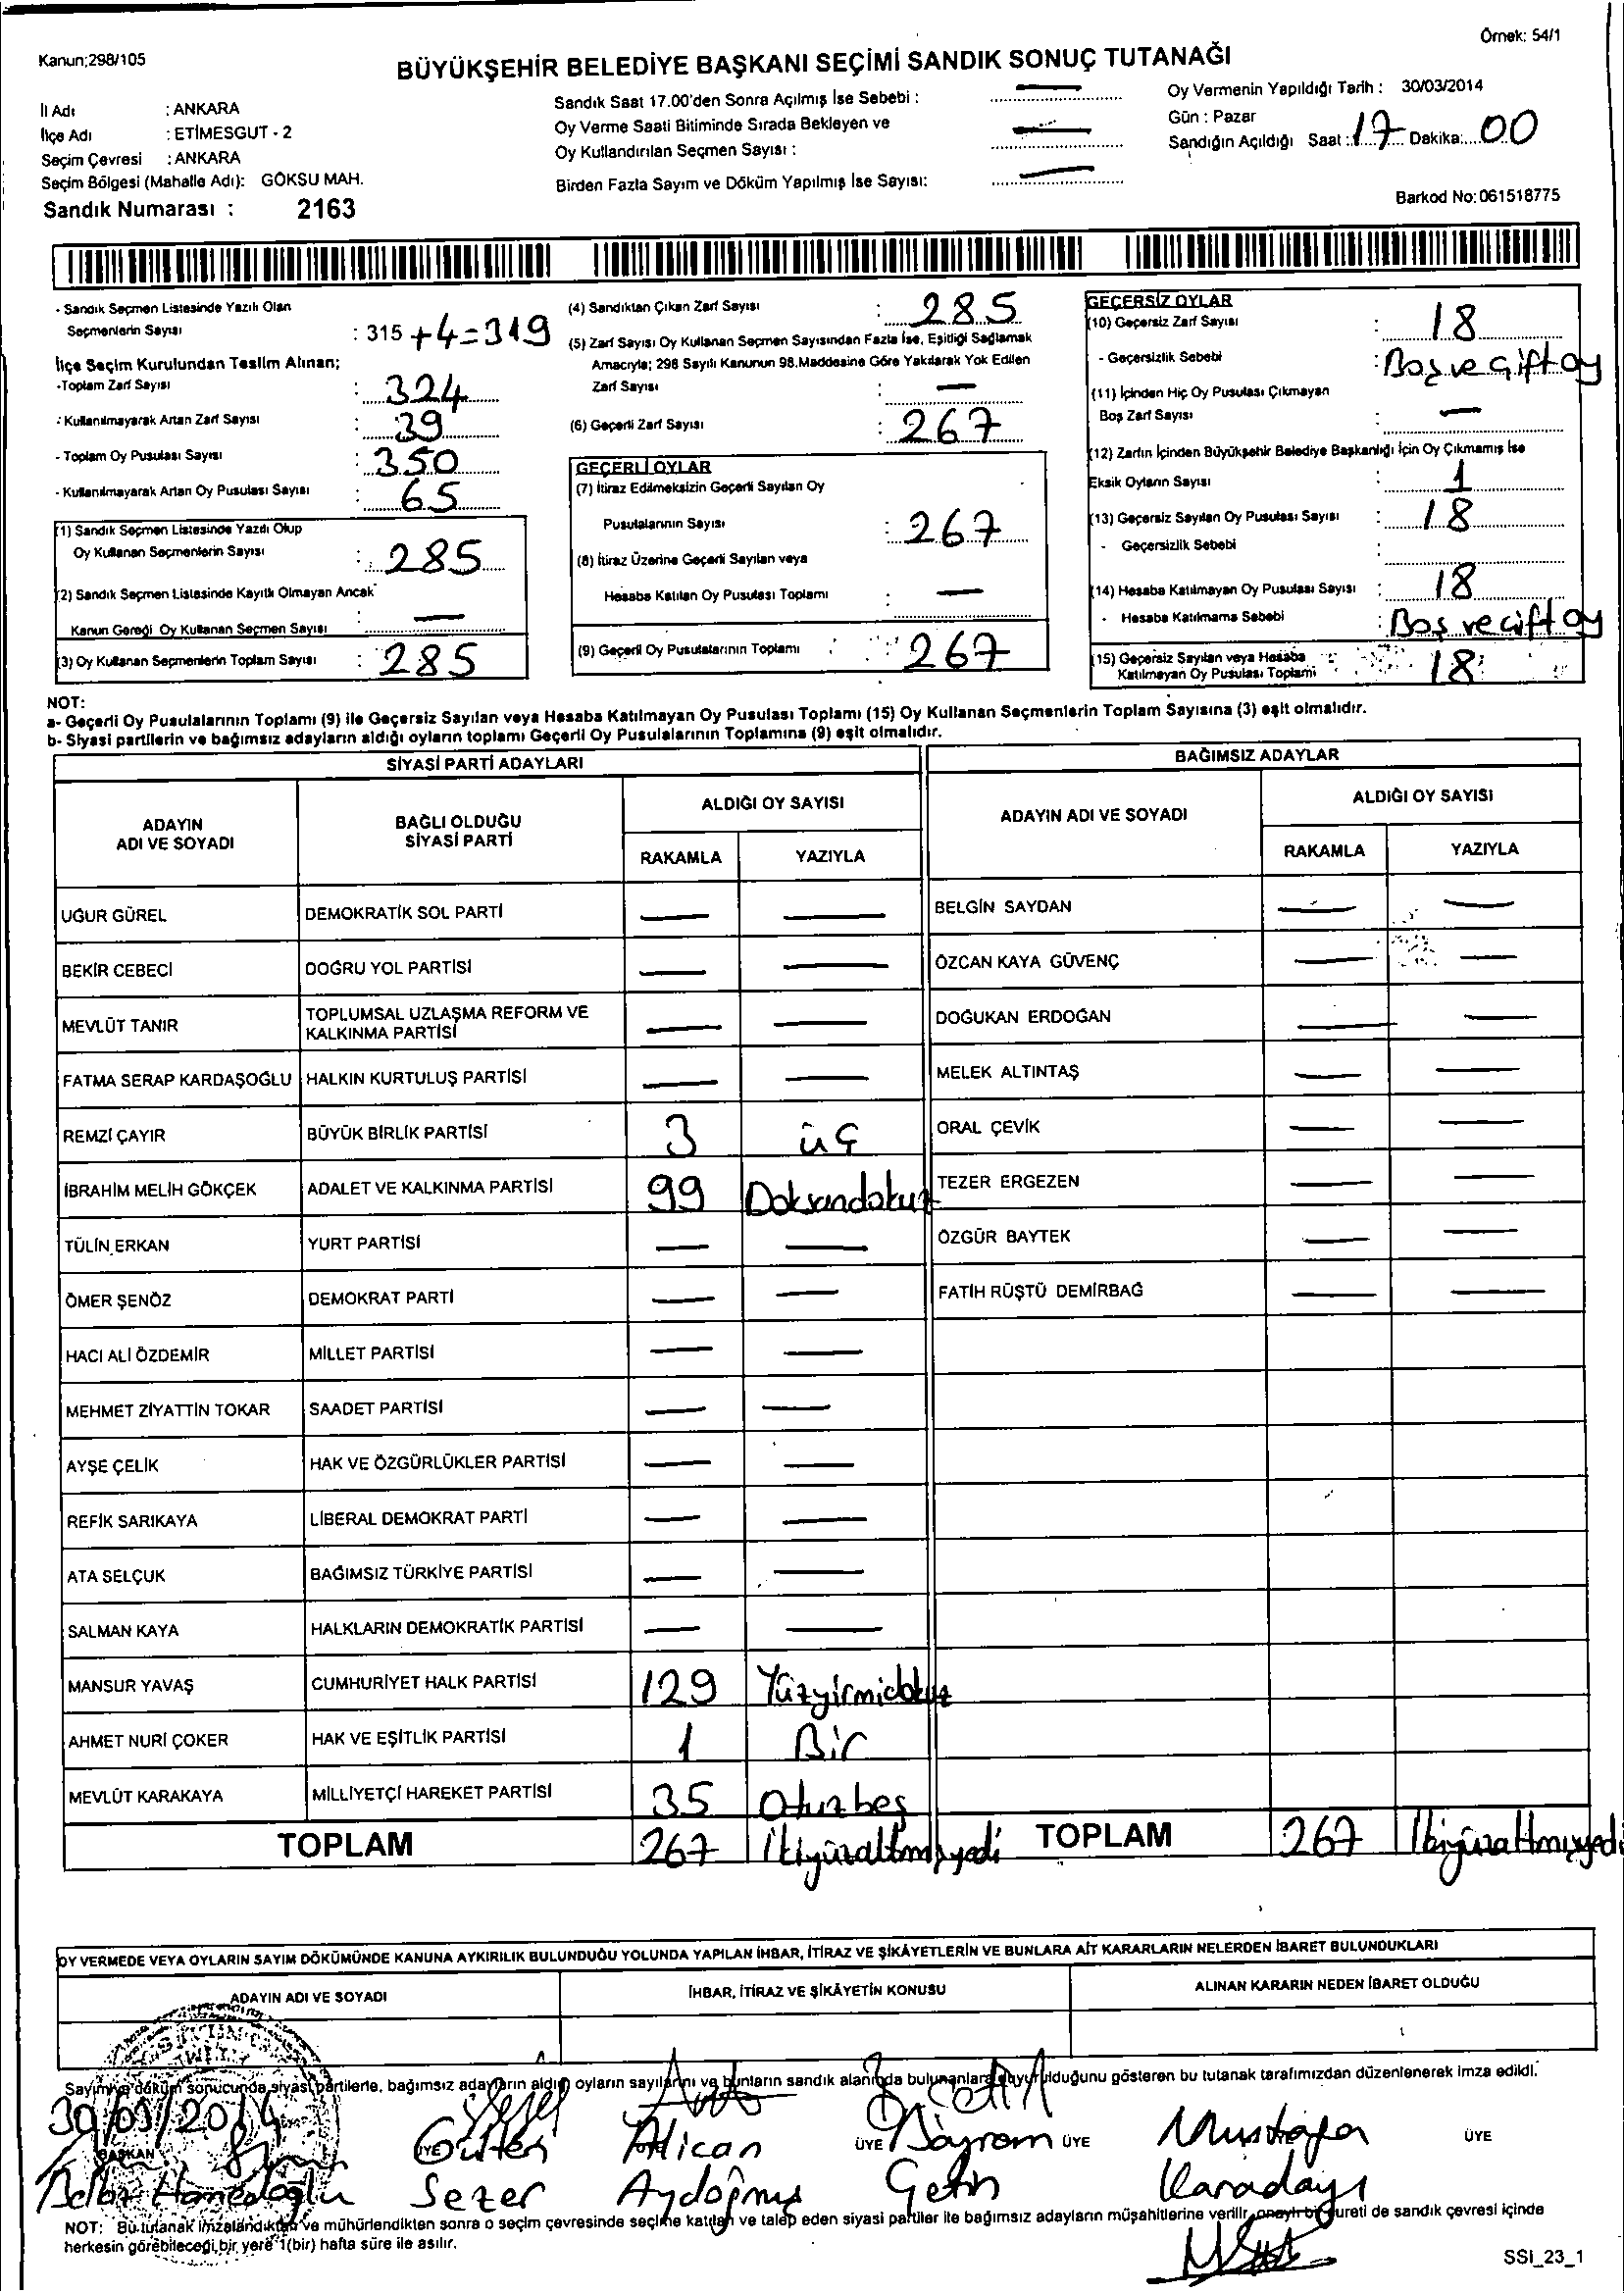 Örnek: 54/1
Kanun;298/105
BÜYÜKŞEHİR BELEDİYE BAŞKANI SEÇİMİ SANDIK SONUÇ TUTANAĞI
İl Adı : ANKARA
İlçe Adı : ETİMESGUT - 2
Seçim Çevresi : ANKARA
Seçim Bölgesi (Mahalle Adı): GÖKSU MAH.
Sandık Numarası : 2163
Sandık Saat 17.00'den Sonra Açılmış İse Sebebi : —
Oy Verme Saati Bitiminde Sırada Bekleyen ve
Oy Kullandırılan Seçmen Sayısı : —
Birden Fazla Sayım ve Döküm Yapılmış İse Sayısı: —
Oy Vermenin Yapıldığı Tarih : 30/03/2014
Gün : Pazar
Sandığın Açıldığı Saat : 17 Dakika: 00
Barkod No:061518775
- Sandık Seçmen Listesinde Yazılı Olan
Seçmenlerin Sayısı : 315 +4=319
İlçe Seçim Kurulundan Teslim Alınan;
-Toplam Zarf Sayısı : 324
- Kullanılmayarak Artan Zarf Sayısı : 39
- Toplam Oy Pusulası Sayısı : 350
- Kullanılmayarak Artan Oy Pusulası Sayısı : 65
(1) Sandık Seçmen Listesinde Yazılı Olup
Oy Kullanan Seçmenlerin Sayısı : 285
(2) Sandık Seçmen Listesinde Kayıtlı Olmayan Ancak
Kanun Gereği Oy Kullanan Seçmen Sayısı : —
(3) Oy Kullanan Seçmenlerin Toplam Sayısı : 285
(4) Sandıktan Çıkan Zarf Sayısı : 285
(5) Zarf Sayısı Oy Kullanan Seçmen Sayısından Fazla İse, Eşitliği Sağlamak
Amacıyla; 298 Sayılı Kanunun 98.Maddesine Göre Yakılarak Yok Edilen
Zarf Sayısı : —
(6) Geçerli Zarf Sayısı : 267
GEÇERLİ OYLAR
(7) İtiraz Edilmeksizin Geçerli Sayılan Oy
Pusulalarının Sayısı : 267
(8) İtiraz Üzerine Geçerli Sayılan veya
Hesaba Katılan Oy Pusulası Toplamı : —
(9) Geçerli Oy Pusulalarının Toplamı : 267
GEÇERSİZ OYLAR
(10) Geçersiz Zarf Sayısı : 18
- Geçersizlik Sebebi : Boş ve Çift oy
(11) İçinden Hiç Oy Pusulası Çıkmayan
Boş Zarf Sayısı : —
(12) Zarfın İçinden Büyükşehir Belediye Başkanlığı İçin Oy Çıkmamış İse
Eksik Oyların Sayısı : 1
(13) Geçersiz Sayılan Oy Pusulası Sayısı : 18
- Geçersizlik Sebebi :
(14) Hesaba Katılmayan Oy Pusulası Sayısı : 18
- Hesaba Katılmama Sebebi : Boş ve çift oy
(15) Geçersiz Sayılan veya Hesaba
Katılmayan Oy Pusulası Toplamı : 18
NOT:
a- Geçerli Oy Pusulalarının Toplamı (9) ile Geçersiz Sayılan veya Hesaba Katılmayan Oy Pusulası Toplamı (15) Oy Kullanan Seçmenlerin Toplam Sayısına (3) eşit olmalıdır.
b- Siyasi partilerin ve bağımsız adayların aldığı oyların toplamı Geçerli Oy Pusulalarının Toplamına (9) eşit olmalıdır.
SİYASİ PARTİ ADAYLARI
ADAYIN ADI VE SOYADI BAĞLI OLDUĞU SİYASİ PARTİ ALDIĞI OY SAYISI
RAKAMLA YAZIYLA
UĞUR GÜREL DEMOKRATİK SOL PARTİ — —
BEKİR CEBECİ DOĞRU YOL PARTİSİ — —
MEVLÜT TANIR TOPLUMSAL UZLAŞMA REFORM VE KALKINMA PARTİSİ — —
FATMA SERAP KARDAŞOĞLU HALKIN KURTULUŞ PARTİSİ — —
REMZİ ÇAYIR BÜYÜK BİRLİK PARTİSİ 3 üç
İBRAHİM MELİH GÖKÇEK ADALET VE KALKINMA PARTİSİ 99 Doksandokuz
TÜLİN ERKAN YURT PARTİSİ — —
ÖMER ŞENÖZ DEMOKRAT PARTİ — —
HACI ALİ ÖZDEMİR MİLLET PARTİSİ — —
MEHMET ZİYATTİN TOKAR SAADET PARTİSİ — —
AYŞE ÇELİK HAK VE ÖZGÜRLÜKLER PARTİSİ — —
REFİK SARIKAYA LİBERAL DEMOKRAT PARTİ — —
ATA SELÇUK BAĞIMSIZ TÜRKİYE PARTİSİ — —
SALMAN KAYA HALKLARIN DEMOKRATİK PARTİSİ — —
MANSUR YAVAŞ CUMHURİYET HALK PARTİSİ 129 Yüzyirmidokuz
AHMET NURİ ÇOKER HAK VE EŞİTLİK PARTİSİ 1 Bir
MEVLÜT KARAKAYA MİLLİYETÇİ HAREKET PARTİSİ 35 Otuzbeş
TOPLAM 267 İkiyüzaltmışyedi
BAĞIMSIZ ADAYLAR
ADAYIN ADI VE SOYADI ALDIĞI OY SAYISI
RAKAMLA YAZIYLA
BELGİN SAYDAN — —
ÖZCAN KAYA GÜVENÇ — —
DOĞUKAN ERDOĞAN — —
MELEK ALTINTAŞ — —
ORAL ÇEVİK — —
TEZER ERGEZEN — —
ÖZGÜR BAYTEK — —
FATİH RÜŞTÜ DEMİRBAĞ — —
TOPLAM 267 İkiyüzaltmışyedi
OY VERMEDE VEYA OYLARIN SAYIM DÖKÜMÜNDE KANUNA AYKIRILIK BULUNDUĞU YOLUNDA YAPILAN İHBAR, İTİRAZ VE ŞİKÂYETLERİN VE BUNLARA AİT KARARLARIN NELERDEN İBARET BULUNDUKLARI
ADAYIN ADI VE SOYADI İHBAR, İTİRAZ VE ŞİKÂYETİN KONUSU ALINAN KARARIN NEDEN İBARET OLDUĞU
Sayım ve döküm sonucunda siyasi partilerle, bağımsız adayların aldığı oyların sayılarını ve bunların sandık alanında bulunanlara duyurulduğunu gösteren bu tutanak tarafımızdan düzenlenerek imza edildi.
30/03/2014
BAŞKAN ÜYE ÜYE ÜYE ÜYE
Gülten Alican Bayram Mustafa
Sezer Aydoğmuş Çetin Karadayı
NOT: Bu tutanak imzalandıktan ve mühürlendikten sonra o seçim çevresinde seçime katılan ve talep eden siyasi partiler ile bağımsız adayların müşahitlerine verilir, onaylı bir sureti de sandık çevresi içinde
herkesin görebileceği bir yere 1(bir) hafta süre ile asılır.
SSI_23_1